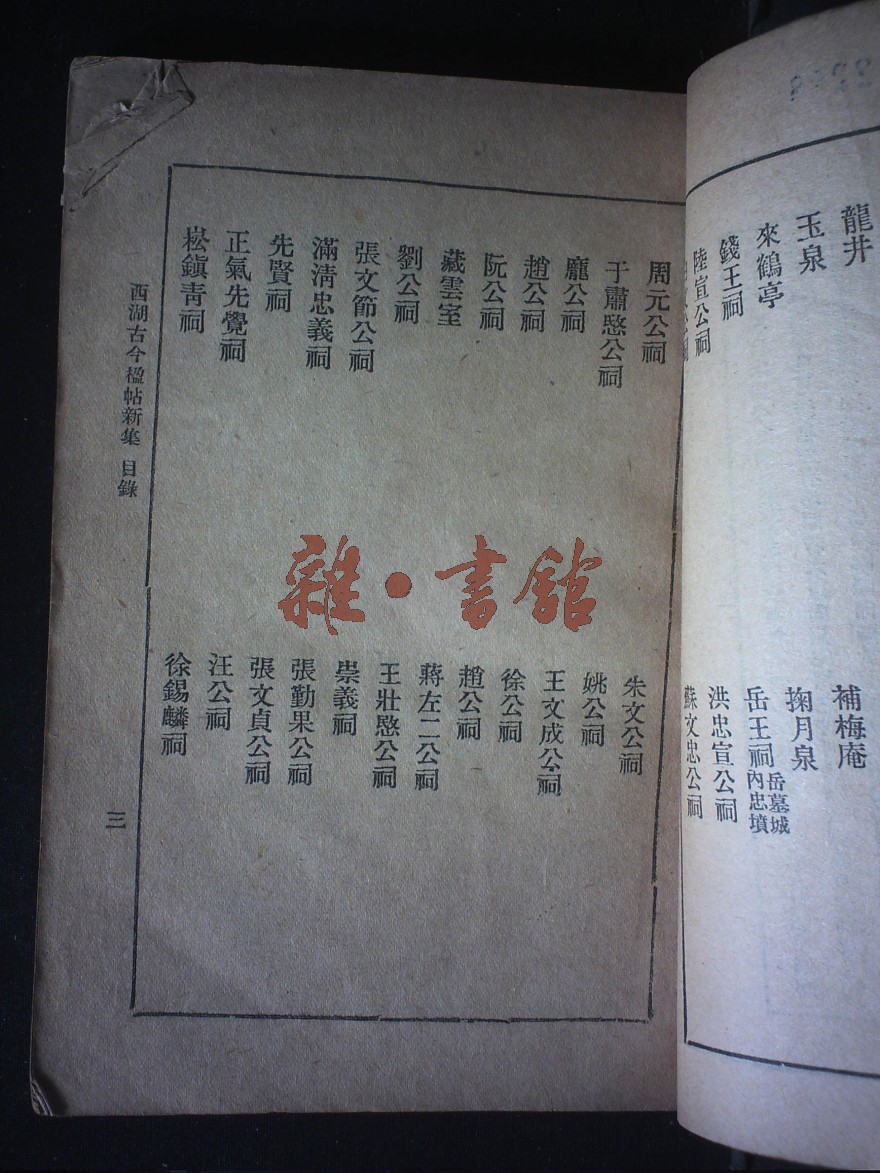 龍井
玉泉
來鶴亭
錢王祠
陸宣公祠
補梅庵
掬月泉
岳王祠 岳墓城內忠墳
洪忠宣公祠
蘇文忠公祠
周元公祠
于肅愍公祠
龐公祠
趙公祠
阮公祠
藏雲室
劉公祠
張文節公祠
滿淸忠義祠
先賢祠
正氣先覺祠
崧鎭靑祠
朱文公祠
姚公祠
王文成公祠
徐公祠
趙公祠
蔣左二公祠
王壯愍公祠
崇義祠
張勤果公祠
張文貞公祠
汪公祠
徐錫麟祠
西湖古今楹帖新集 目錄
三
雜·書館